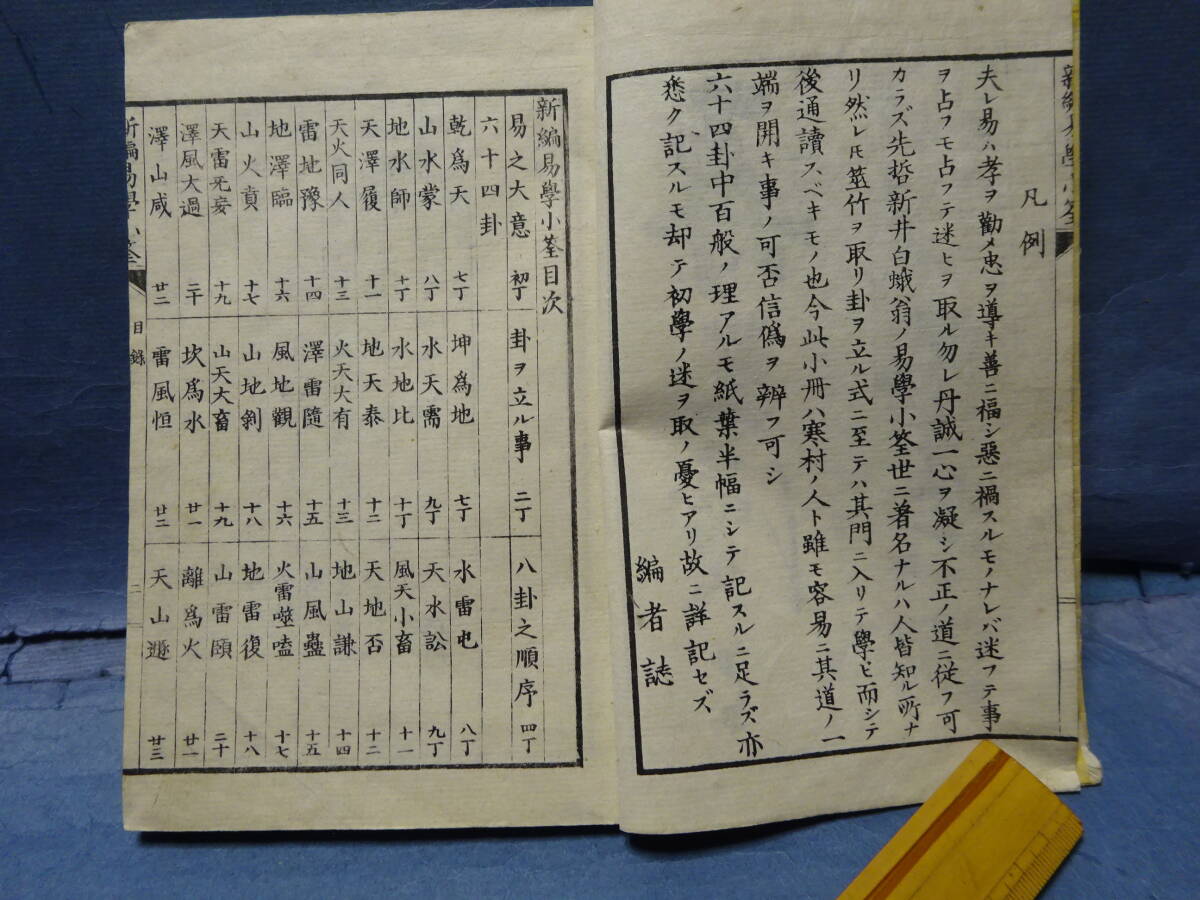 凡例
夫レ易ハ孝ヲ勸メ忠ヲ導キ善ニ福シ惡ニ禍スルモノナレバ迷フテ事
ヲ占フモ占フテ迷ヒヲ取ル勿レ丹誠一心ヲ凝シ不正ノ道ニ從フ可
カラズ先哲新井白蛾翁ノ易學小筌世ニ著名ナルハ人皆知ル所ナ
リ然レ𪜈筮竹ヲ取リ卦ヲ立ル式ニ至テハ其門ニ入リテ學ヒ而シテ
後通讀スベキモノ也今此小冊ハ寒村ノ人ト雖モ容易ニ其道ノ一
端ヲ開キ事ノ可否信僞ヲ辨フ可シ
六十四卦中百般ノ理アルモ紙葉半幅ニシテ記スルニ足ラズ亦
悉ク記スルモ却テ初學ノ迷ヲ取ノ憂ヒアリ故ニ詳記セズ
編者誌
新編易學小筌目次
易之大意 初丁 卦ヲ立ル事 二丁 八卦之順序 四丁
六十四卦
乾爲天 七丁 坤爲地 七丁 水雷屯 八丁
山水蒙 八丁 水天需 九丁 天水訟 九丁
地水師 十丁 水地比 十丁 風天小畜 十一
天澤履 十一 地天泰 十二 天地否 十二
天火同人 十三 火天大有 十三 地山謙 十四
雷地豫 十四 澤雷隨 十五 山風蠱 十五
地澤臨 十六 風地觀 十六 火雷噬嗑 十七
山火賁 十七 山地剝 十八 地雷復 十八
天雷无妄 十九 山天大畜 十九 山雷頤 二十
澤風大過 二十 坎爲水 廿一 離爲火 廿一
澤山咸 廿二 雷風恒 廿二 天山遯 廿三
新編易學小筌
目錄
二